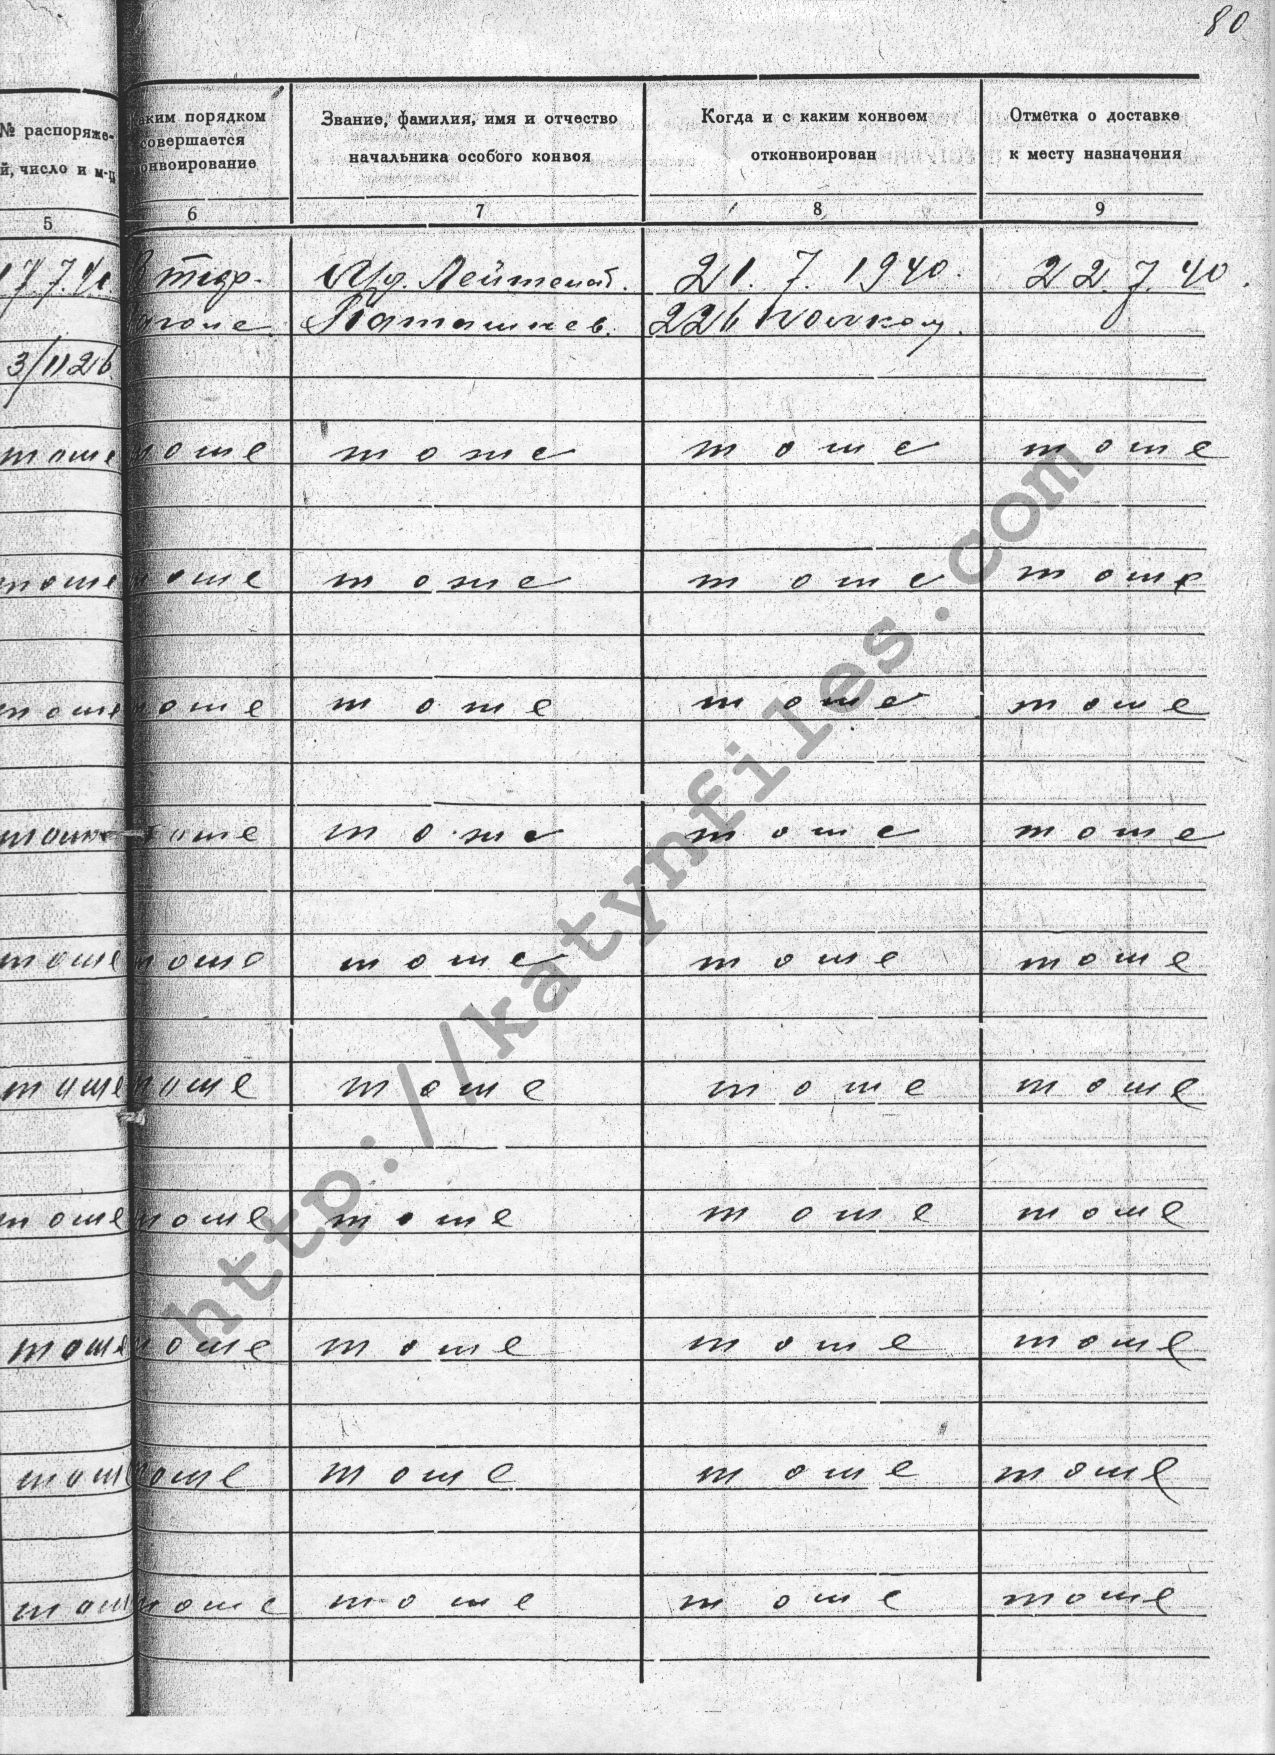 80
№ распоряже-
й, число и м-ц
5
аким порядком
совершается
конвоирование
6
Звание, фамилия, имя и отчество
начальника особого конвоя
7
Когда и с каким конвоем
отконвоирован
8
Отметка о доставке
к месту назначения
9
17.7.40 В тюр. Мл. Лейтенат. 21. 7. 1940. 22.7.40.
вагоне 226 полком.
3/1126
тоше тоше тоже тоше тоше
тоше тоше тоже тоше тоше
тоше тоше тоже тоше тоше
тоше тоше тоже тоше тоше
тоше тоше тоше тоше тоше
тоше тоше тоше тоше тоше
тоше тоше тоше тоше тоше
тоше тоше тоше тоше тоше
тоше тоше тоше тоше тоше
тоше тоше тоше тоше тоше
http://katynfiles.com